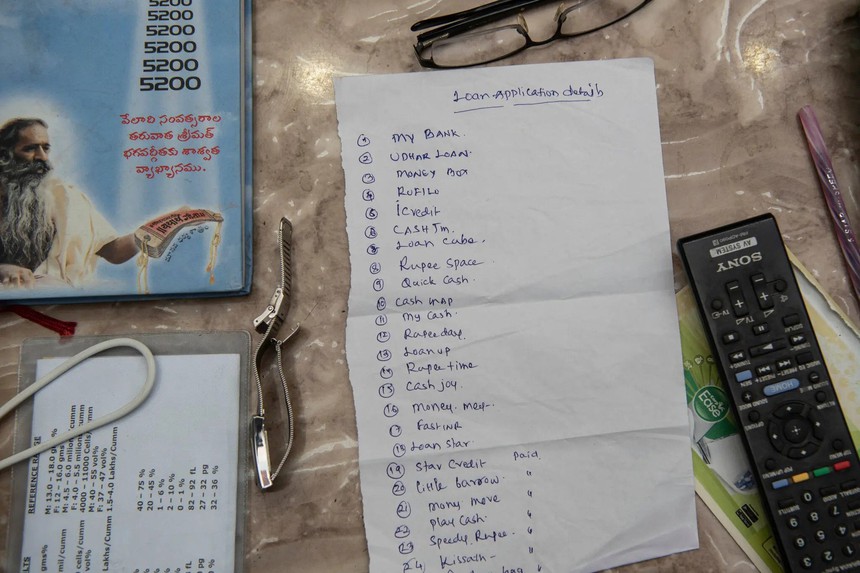 5200
5200
5200
5200
5200
5200
వేలాది సంవత్సరాల
తరువాత శ్రీమత్
భగవద్గీతకు శాశ్వత
వ్యాఖ్యానము.
Loan Application details
1 MY BANK.
2 UDHAR LOAN.
3 MONEY BOX
4 RUFILO
5 iCredit
6 CASH Jm.
7 Loan Cube.
8 Rupee Space.
9 Quick Cash.
10 Cash map
11 My Cash.
12 Rupee day.
13 Loan up
14 Rupee time
15 Cash joy.
16 Money. mey-
17 Fast INR
18 Loan Star.
19 Star Credit Paid
20 little borrow. "
21 money move "
22 Play Cash. "
23 Speedy. Rupee. "
24 Kissath- "
SONY
AV SYSTEM
HOME
REFERENCE
M: 13.0 - 18.0
F: 12 - 16.0
M: 4.5 - 6.0
F: 4.0 - 5.5
4000 - 11000 Cells/cumm
M: 40 - 55 vol%
F: 37 - 47 vol%
1.5-4.0 Lakhs/Cumm
40 - 75 %
20 - 45 %
1 - 6 %
2 - 10 %
0 - 1 %
82 - 92 fL
27 - 32 pg
32 - 36 %
gms%
mil/cumm
cells/cumm
vol%
Lakhs/Cumm